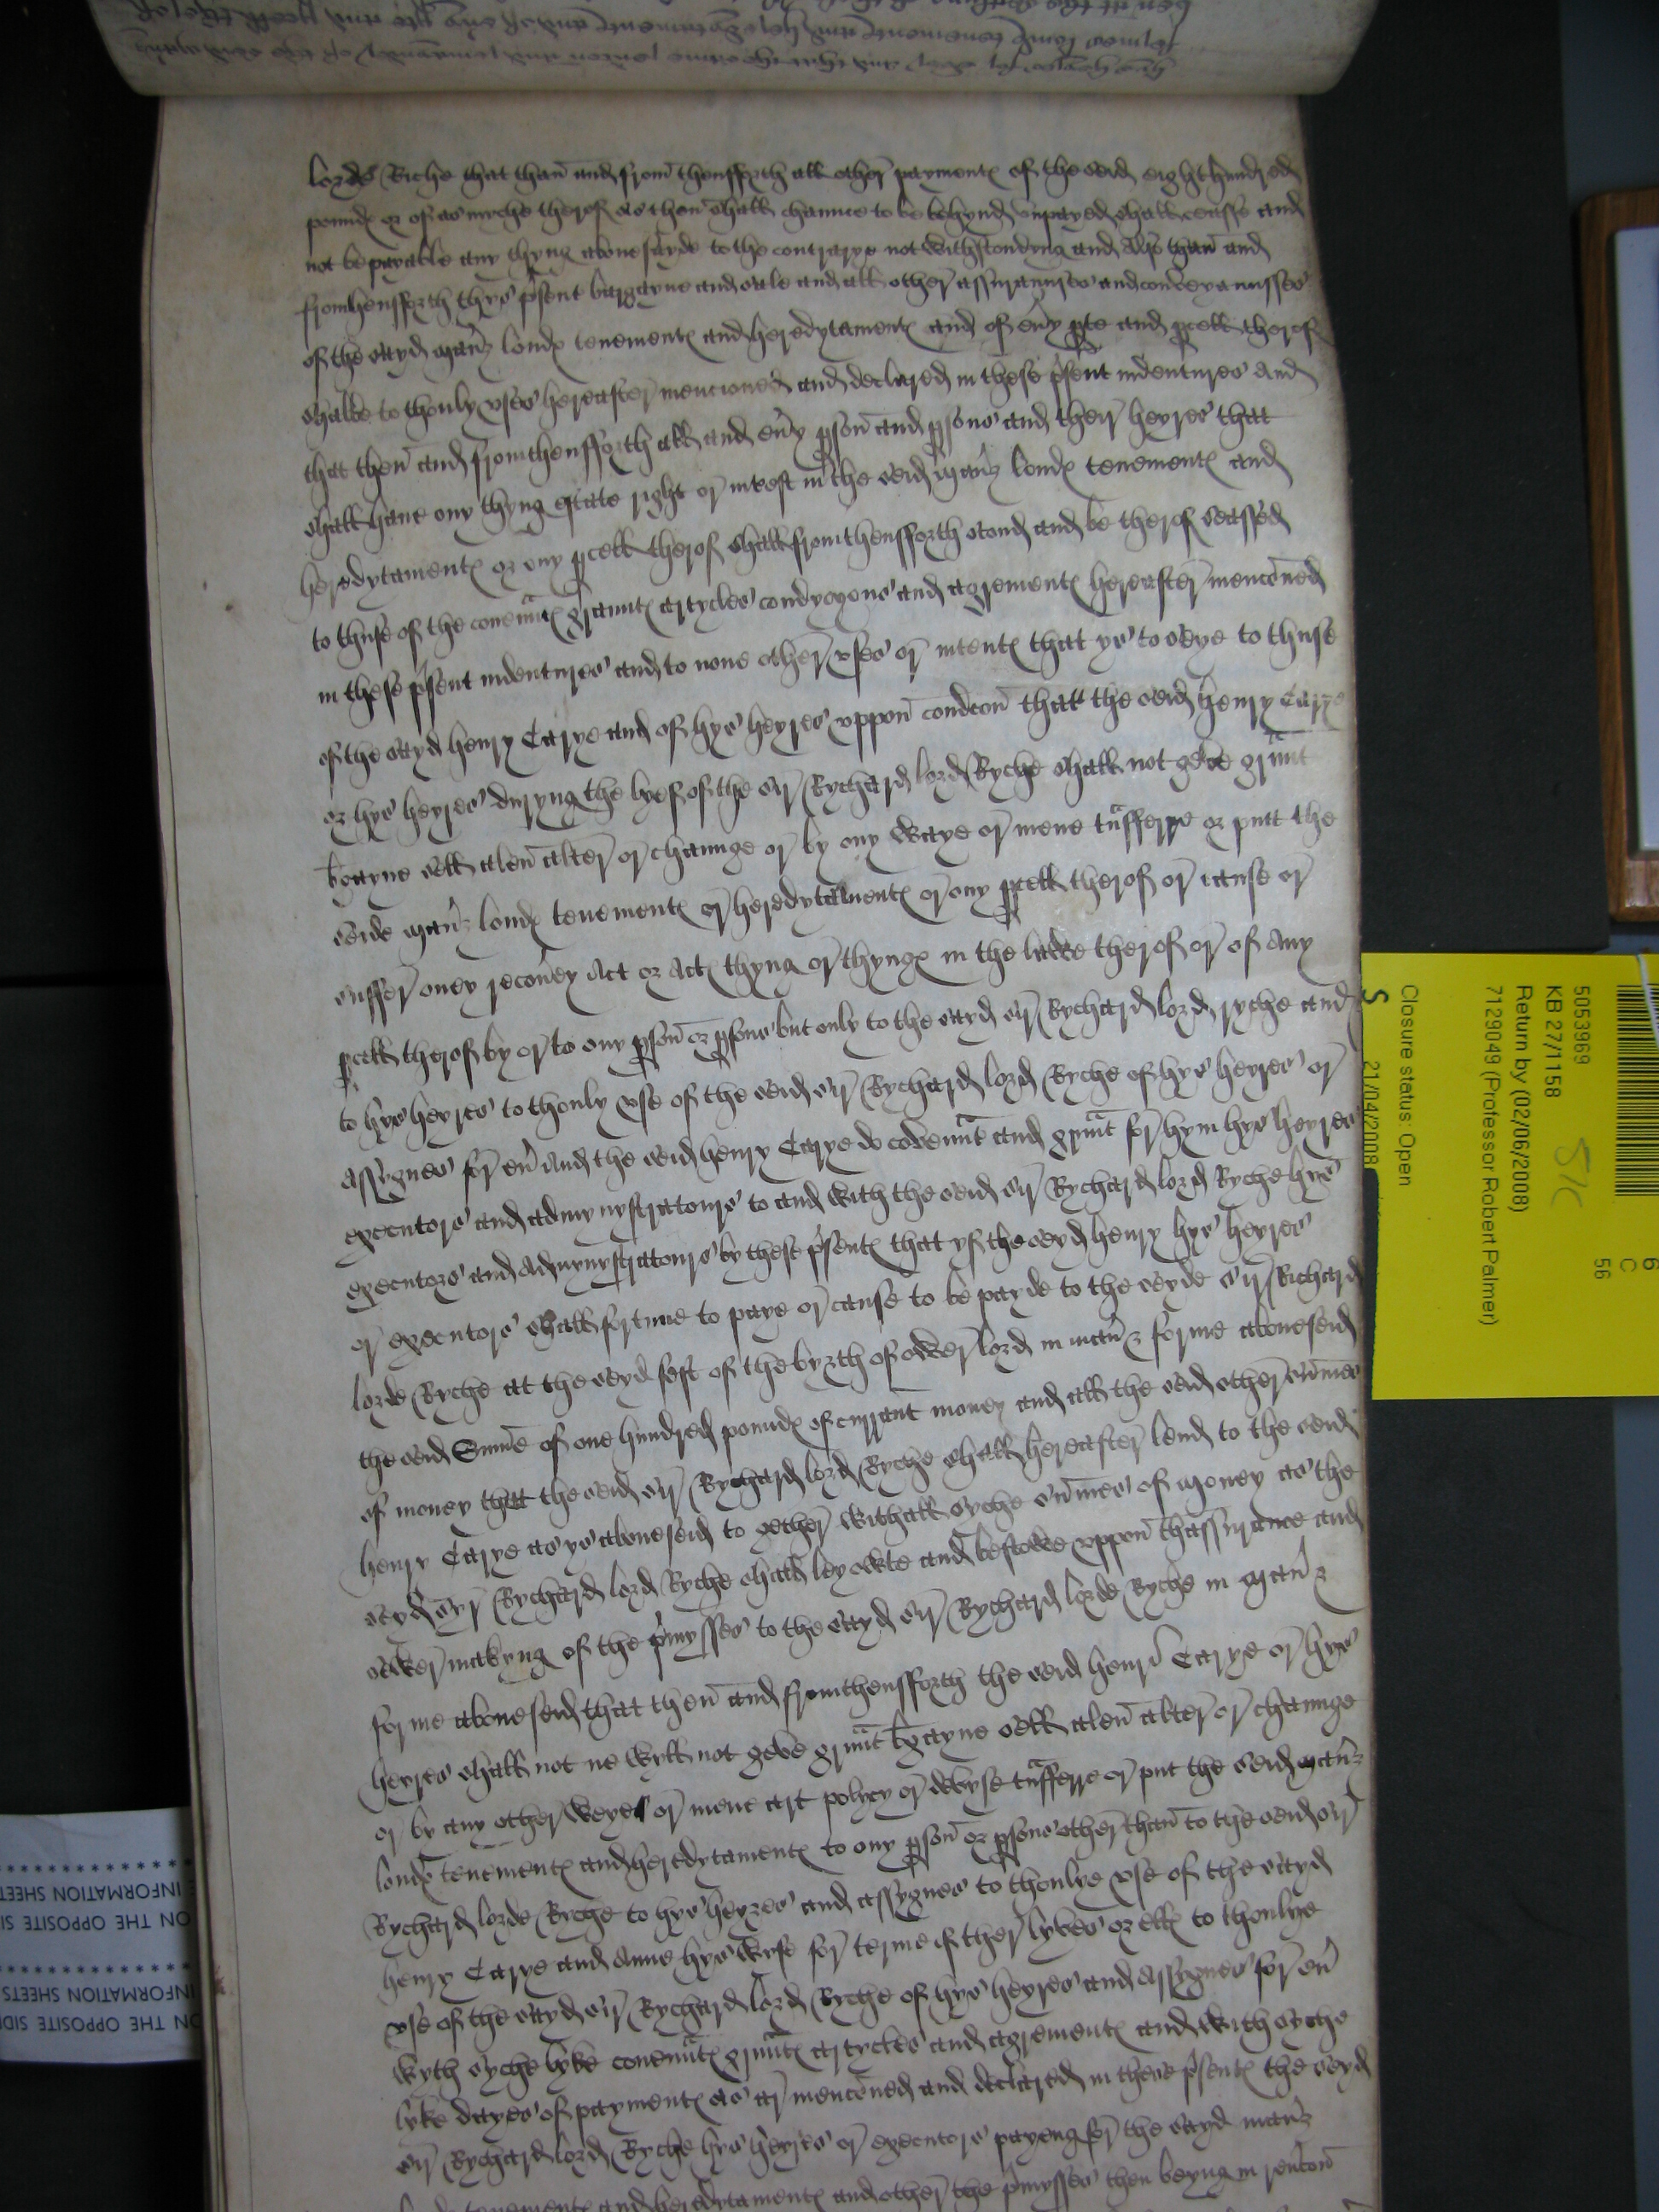 lorde Riche that than and from thensfforth all other payment of the seid eight hundred
pound or of as myche therof as then shall chaunce to be behynd onpayed shall ceasse and
not be payable any thyng abovesayde to the contrarye not withstondyng and Also than and
fromhensfforth thys psent bargayne and sale and all other assuraunces and conveyaunsses
of the sayd man londs tenements and heredytaments and of evy pte and pcell therof
shalbe to thonly uses hereafter mencioned and declared in these psent indentures And
that then and fromthensfforth all and evy pson and psons and their heyres that
shall have ony thyng estate right or intest in the seid man londs tenements and
heredytaments or ony pcell therof shall fromthensfforth stond and be therof seassed
to thuse of the covennts graunts artycles condycyons and agrements hereafter mencened
in these psent indentures and to none other uses or intents that ys to seye to thuse
of the sayd henry Carye and of hys heyres uppon condcon that the seid henry Carye
or hys heyres duryng the lyef of the sir Rychard lord Ryche shall not geve grunt
bgayne sell alen alter or chaunge or by ony waye or mene tnsferre or putt the
seide man londs tenements or heredytaments or ony pcell therof or cause or
suffer oney recovey Act or Acts thyng or thyngs in the lawe therof or of Any
pcell therof by or to ony pson or psons but only to the sayd sir Rychard lord ryche and
to hys heyres to thonly use of the seid sir Rychard lord Ryche of hys heyres or
assygnes for ev And the seid henry Carye do covennt and grunt for hym hys heyres
executors and admynystratours to and with the seid sir Rychard lord Ryche hys
executors and Admynystratours by these psents that yf the seyd henry hys heyres
or executors shall fortune to paye or cause to be payde to the seyde sir Richard
lorde Ryche at the seyd fest of the byrth of ower lord in man & forme aboveseid
the seid Summe of one hundred pounds of currant money and all the seid other summes
of money that the seid sir Rychard lord Ryche shall hereafter lend to the seid
henry Carye as ys aboveseid to gether withall syche summes of money as the
seyd syr Rychard lord Ryche shall ley owte and bestowe uppon thassurance and
suer makyng of the pmysses to the sayd sir Rychard lorde Ryche in man &
forme aboveseid that then and fromthensfforth the seid henri Carye or hys
heyres shall not ne wyll not geve grunt bgayne sell alen alter or chaunge
or by any other weyes or mene art polycy or devyse tnsferre or put the seid man
londs tenements and heredytaments to ony pson or psons other than to the seid sir
Rychard lorde Ryche to hys heyres and assygnes to thonlye use of the sayd
henry Carye and Anne hys wyfe for terme of ther lyves or ells to thonlye
use of the sayd sir Rychard lord Ryche of hys heyres and Assygnes for ev
wyth syche lyke covennts grunts artycles and agrements and with syche
lyke dayes of payments as ar mencened and declared in these psents the seyd
sir Rychard lord Ryche hys heyres or executors payeng for the sayd man
tenements and heredytaments and other the pmysses then beyng in
5053969
KB 27/1158
Return by (02/06/2008)
7129049 (Professor Robert Palmer)
Closure status: Open
S
21/04/2008
S/C
6
C
56
INFORMATION SHEET
ON THE OPPOSITE SI
INFORMATION SHEETS
ON THE OPPOSITE SIDE